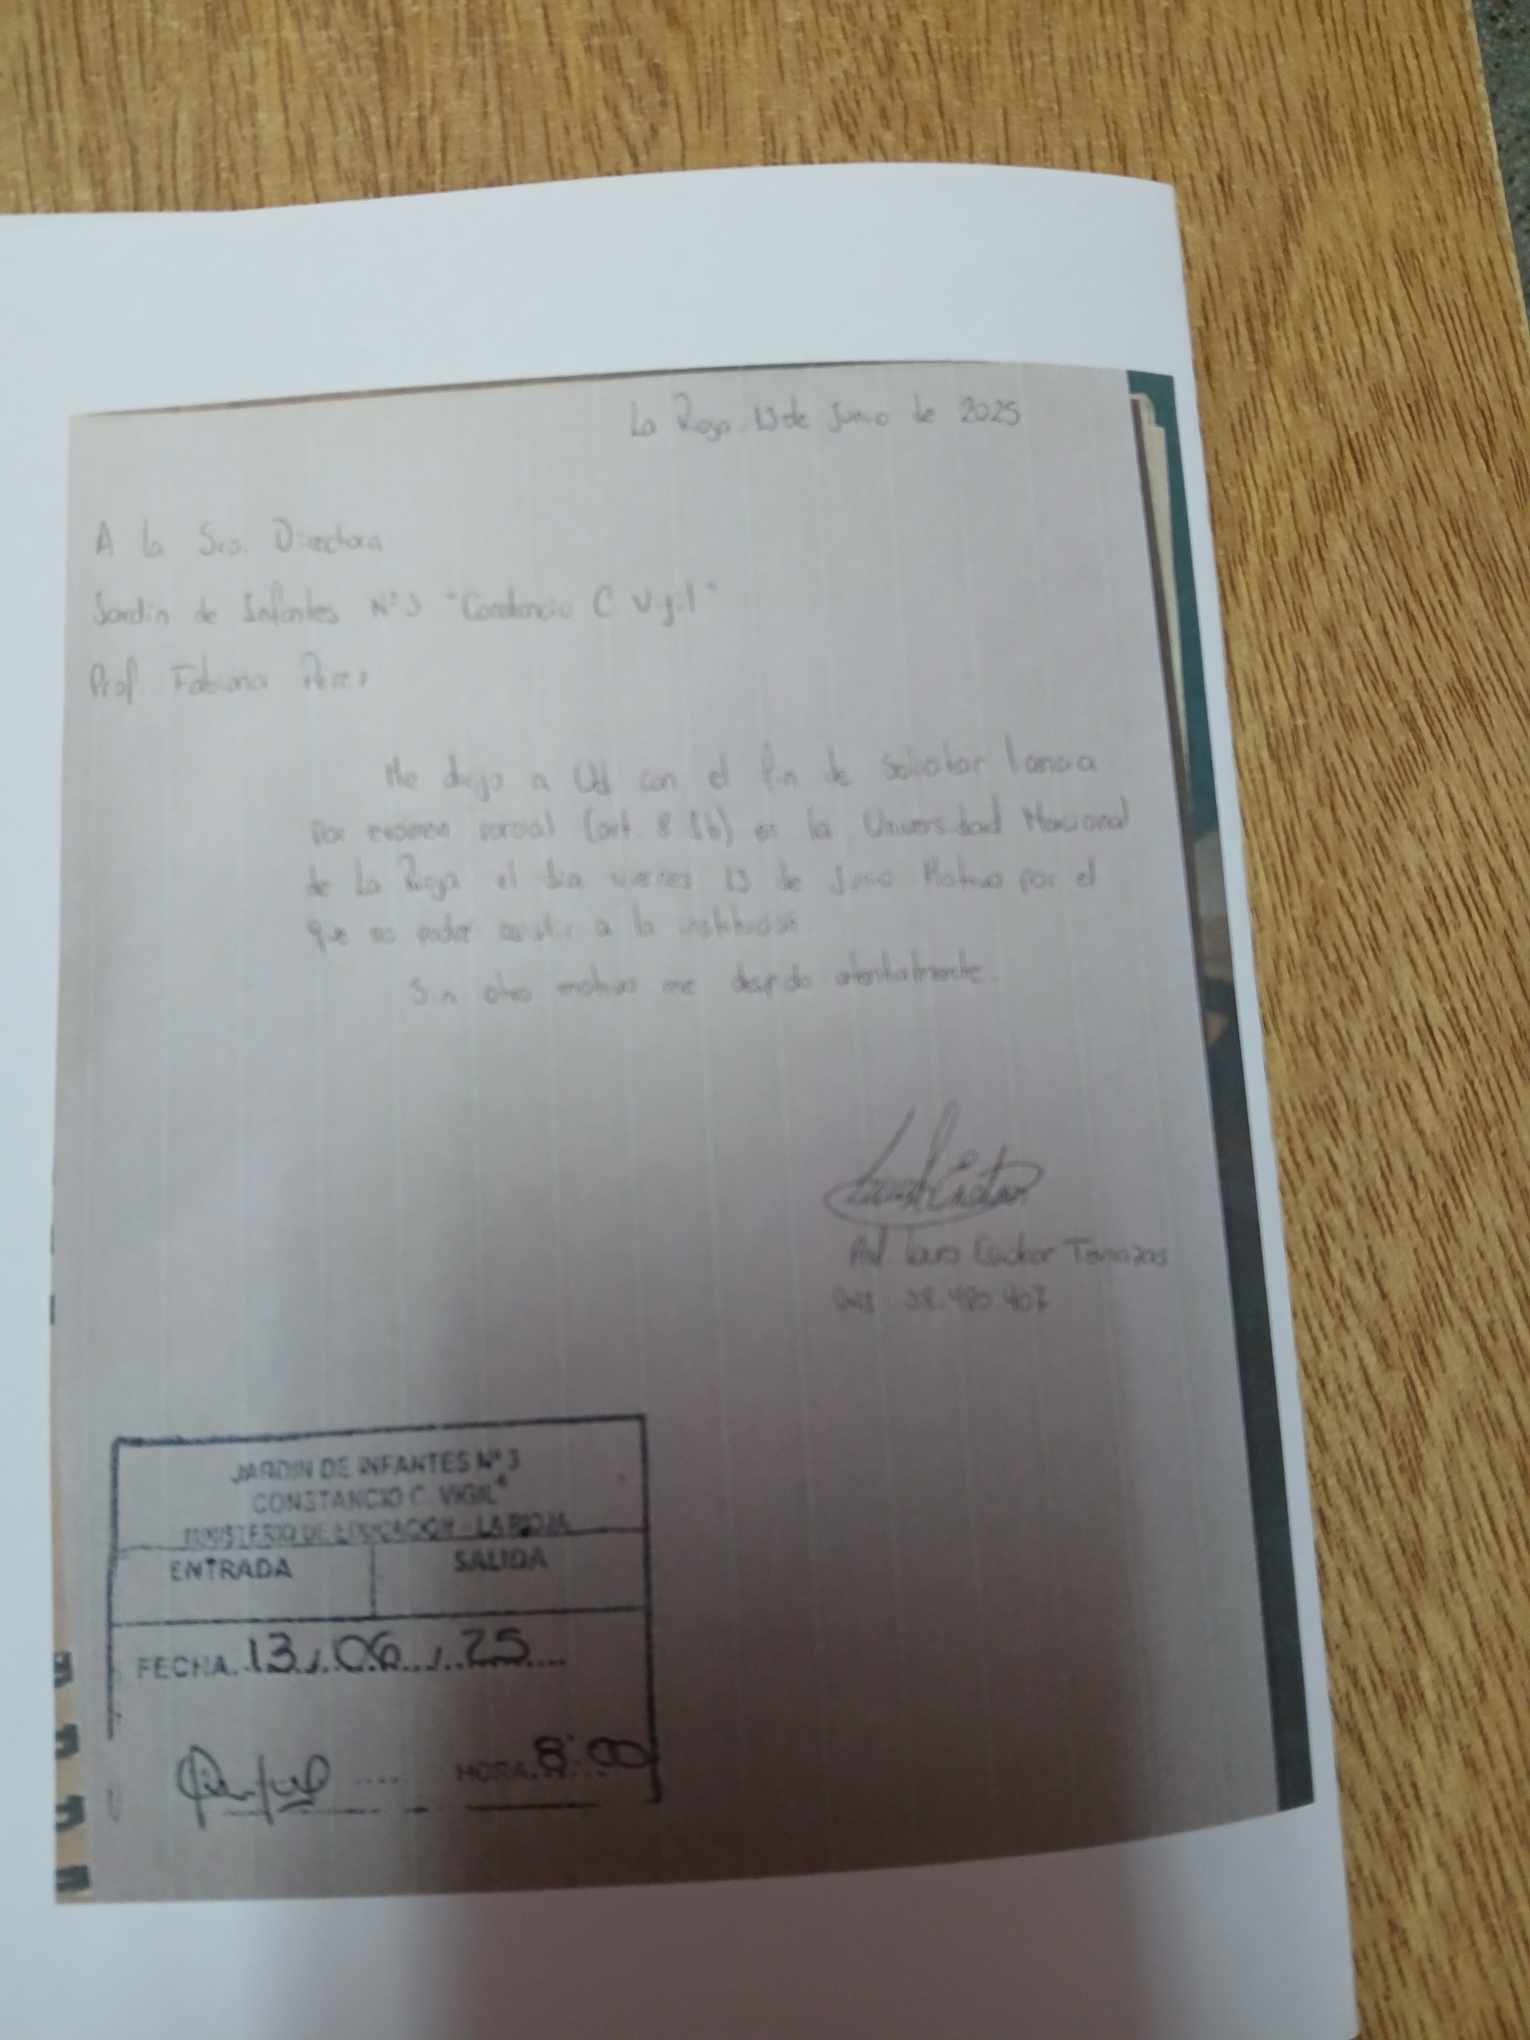 La Rioja, 13 de Junio de 2025
A la Sra. Directora
Jardín de Infantes N° 3 "Constancio C Vigil"
Prof Fabiana
Me dirijo a Ud con el fin de solicitar
por examen parcial (art 8 ) en la Universidad Nacional
de La Rioja el día viernes 13 de Junio Motivo por el
que no podré asistir a la institución
Sin otro motivo me despido atentamente.
Tanazas
JARDIN DE INFANTES N° 3
CONSTANCIO C. VIGIL"
MINISTERIO DE EDUCACION - LA RIOJA
ENTRADA SALIDA
FECHA. 13 / 06 / 25
HORA. 8:00